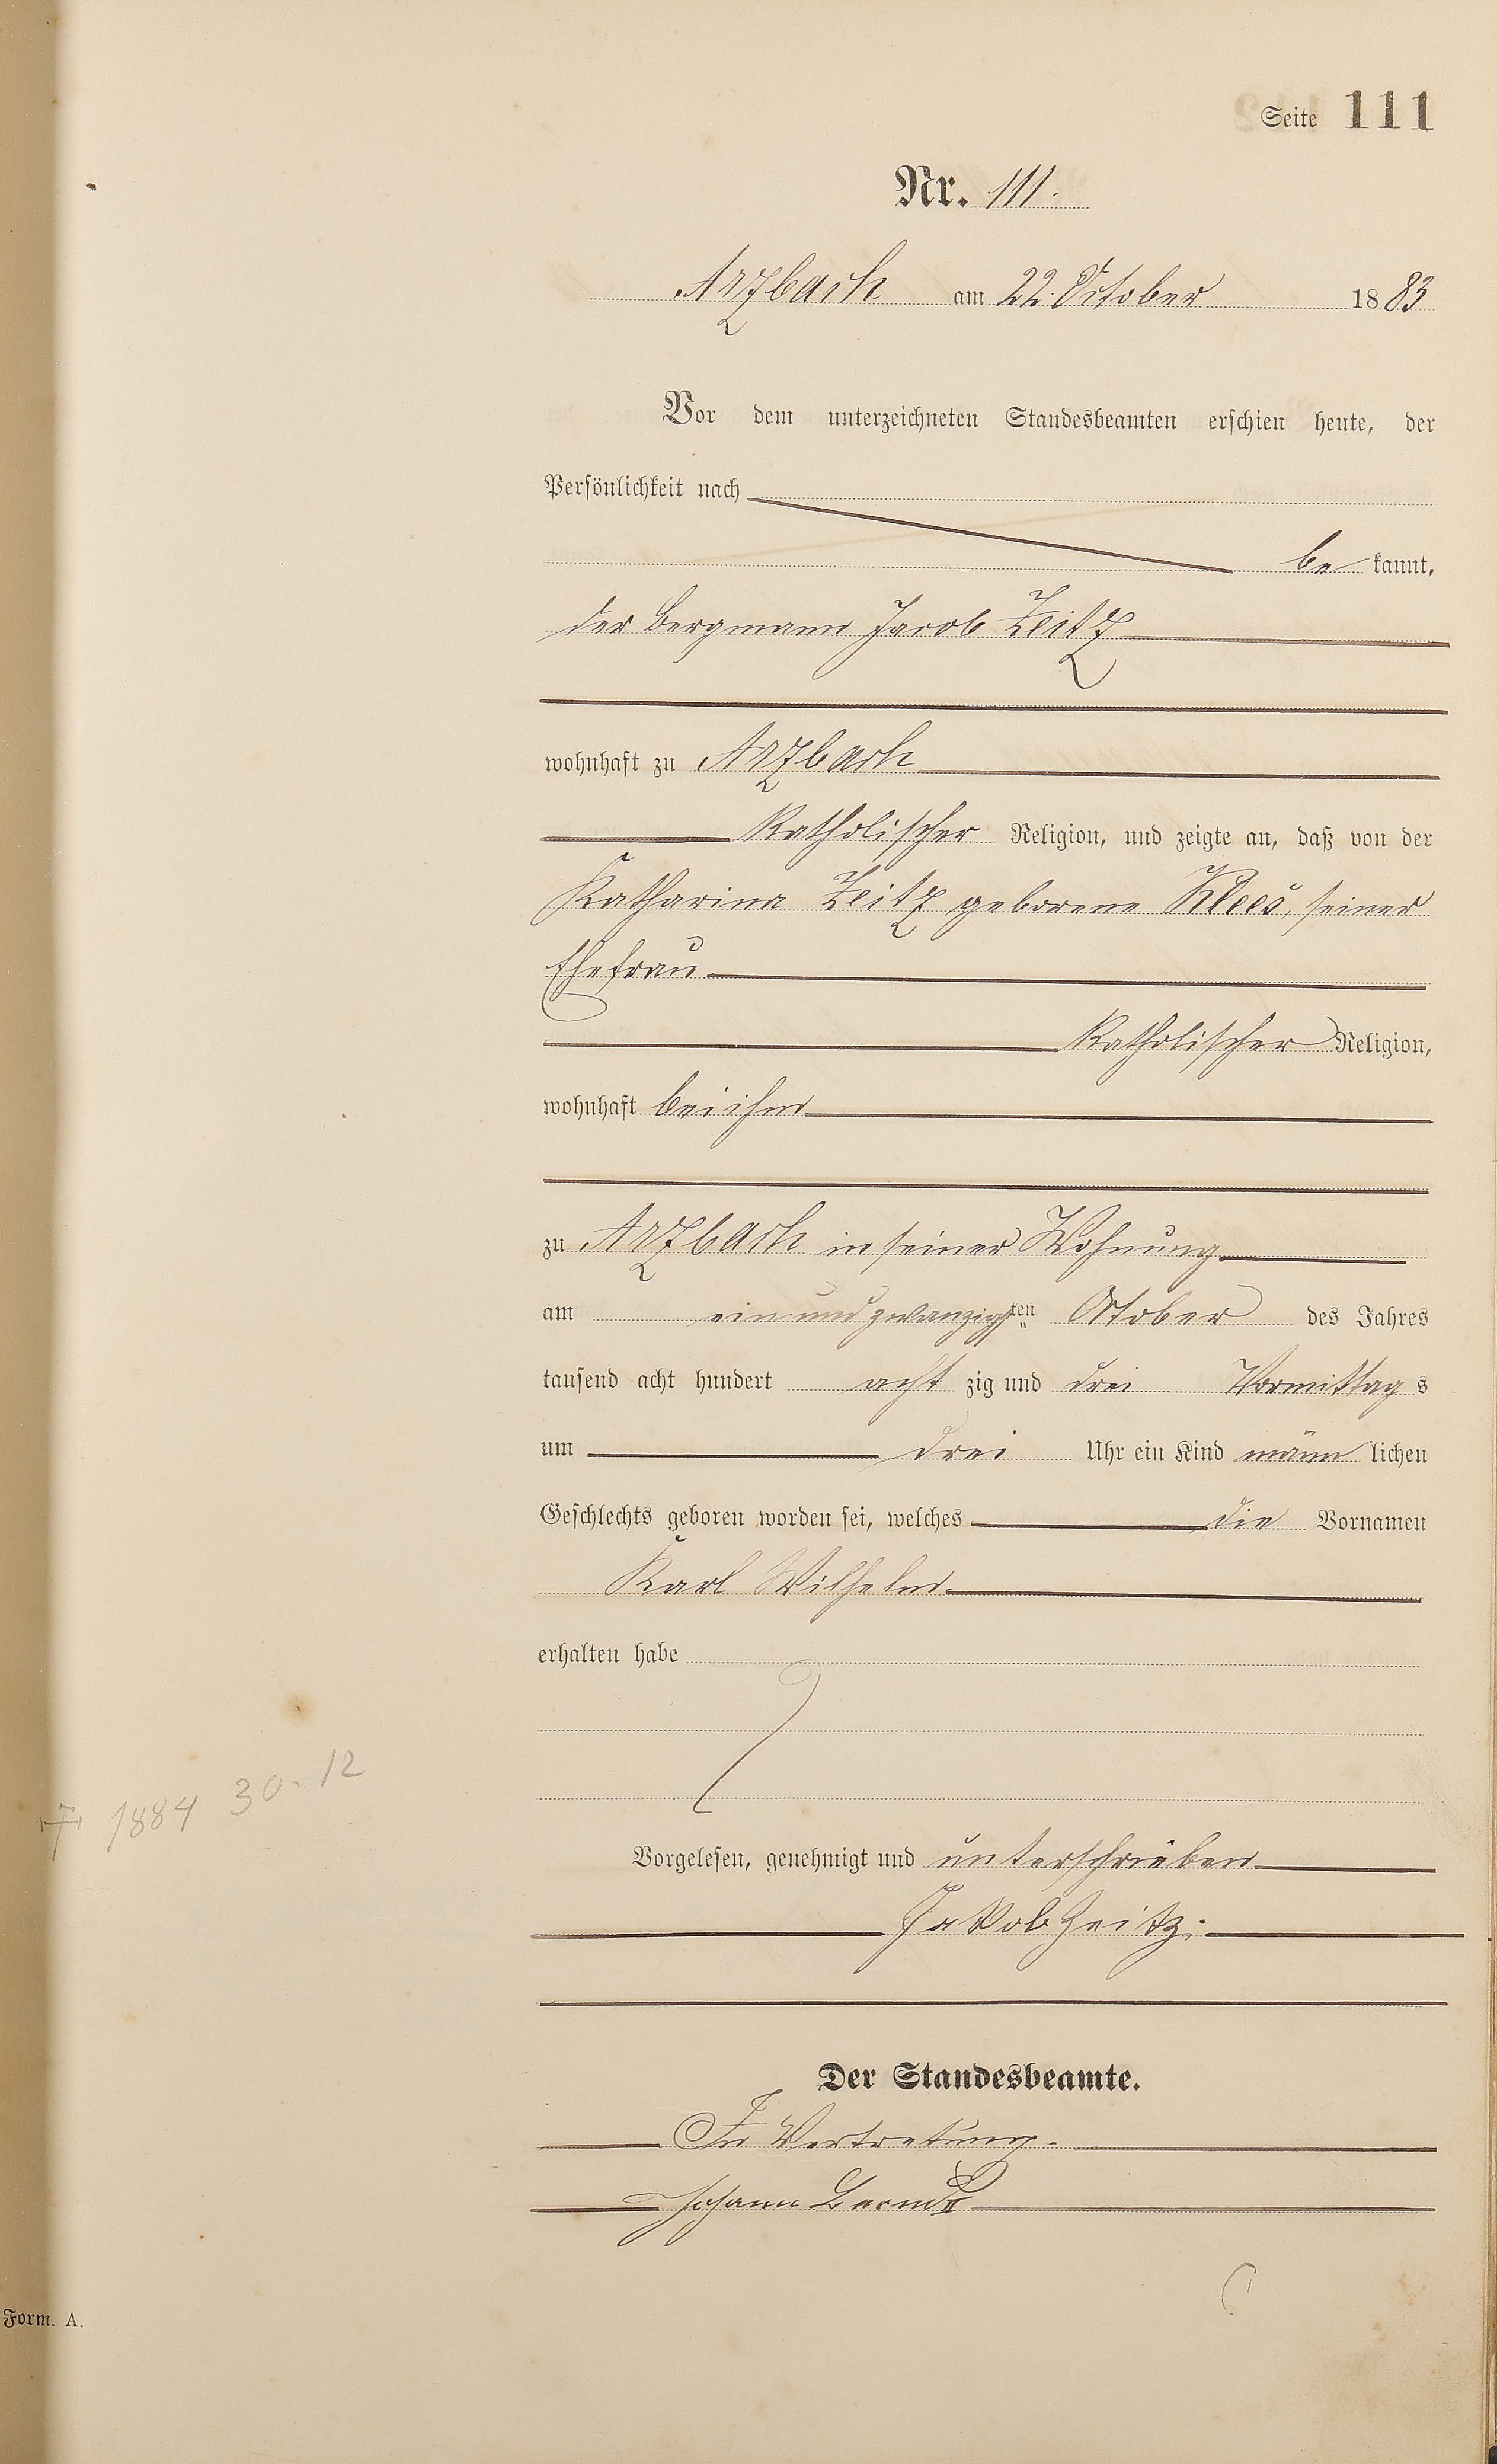 Seite 111
Nr. 111.
Arzbach am 22. October 1883
Vor dem unterzeichneten Standesbeamten erschien heute, der
Persönlichkeit nach
be kannt,
der Bergmann Jacob Zeitz
wohnhaft zu Arzbach
Katholischer Religion, und zeigte an, daß von der
Katharina Zeitz geborene Klees, seiner
Ehefrau
Katholischer Religion,
wohnhaft bei ihm
zu Arzbach in seiner Wohnung
am ein und zwanzigsten October des Jahres
tausend acht hundert acht zig und drei Vormittag s
um drei Uhr ein Kind männ lichen
Geschlechts geboren worden sei, welches die Vornamen
Karl Wilhelm
erhalten habe
† 1884 30.12
Vorgelesen, genehmigt und unterschrieben
Jakob Zeitz.
Der Standesbeamte.
In Vertretung.
Johann
Form. A.